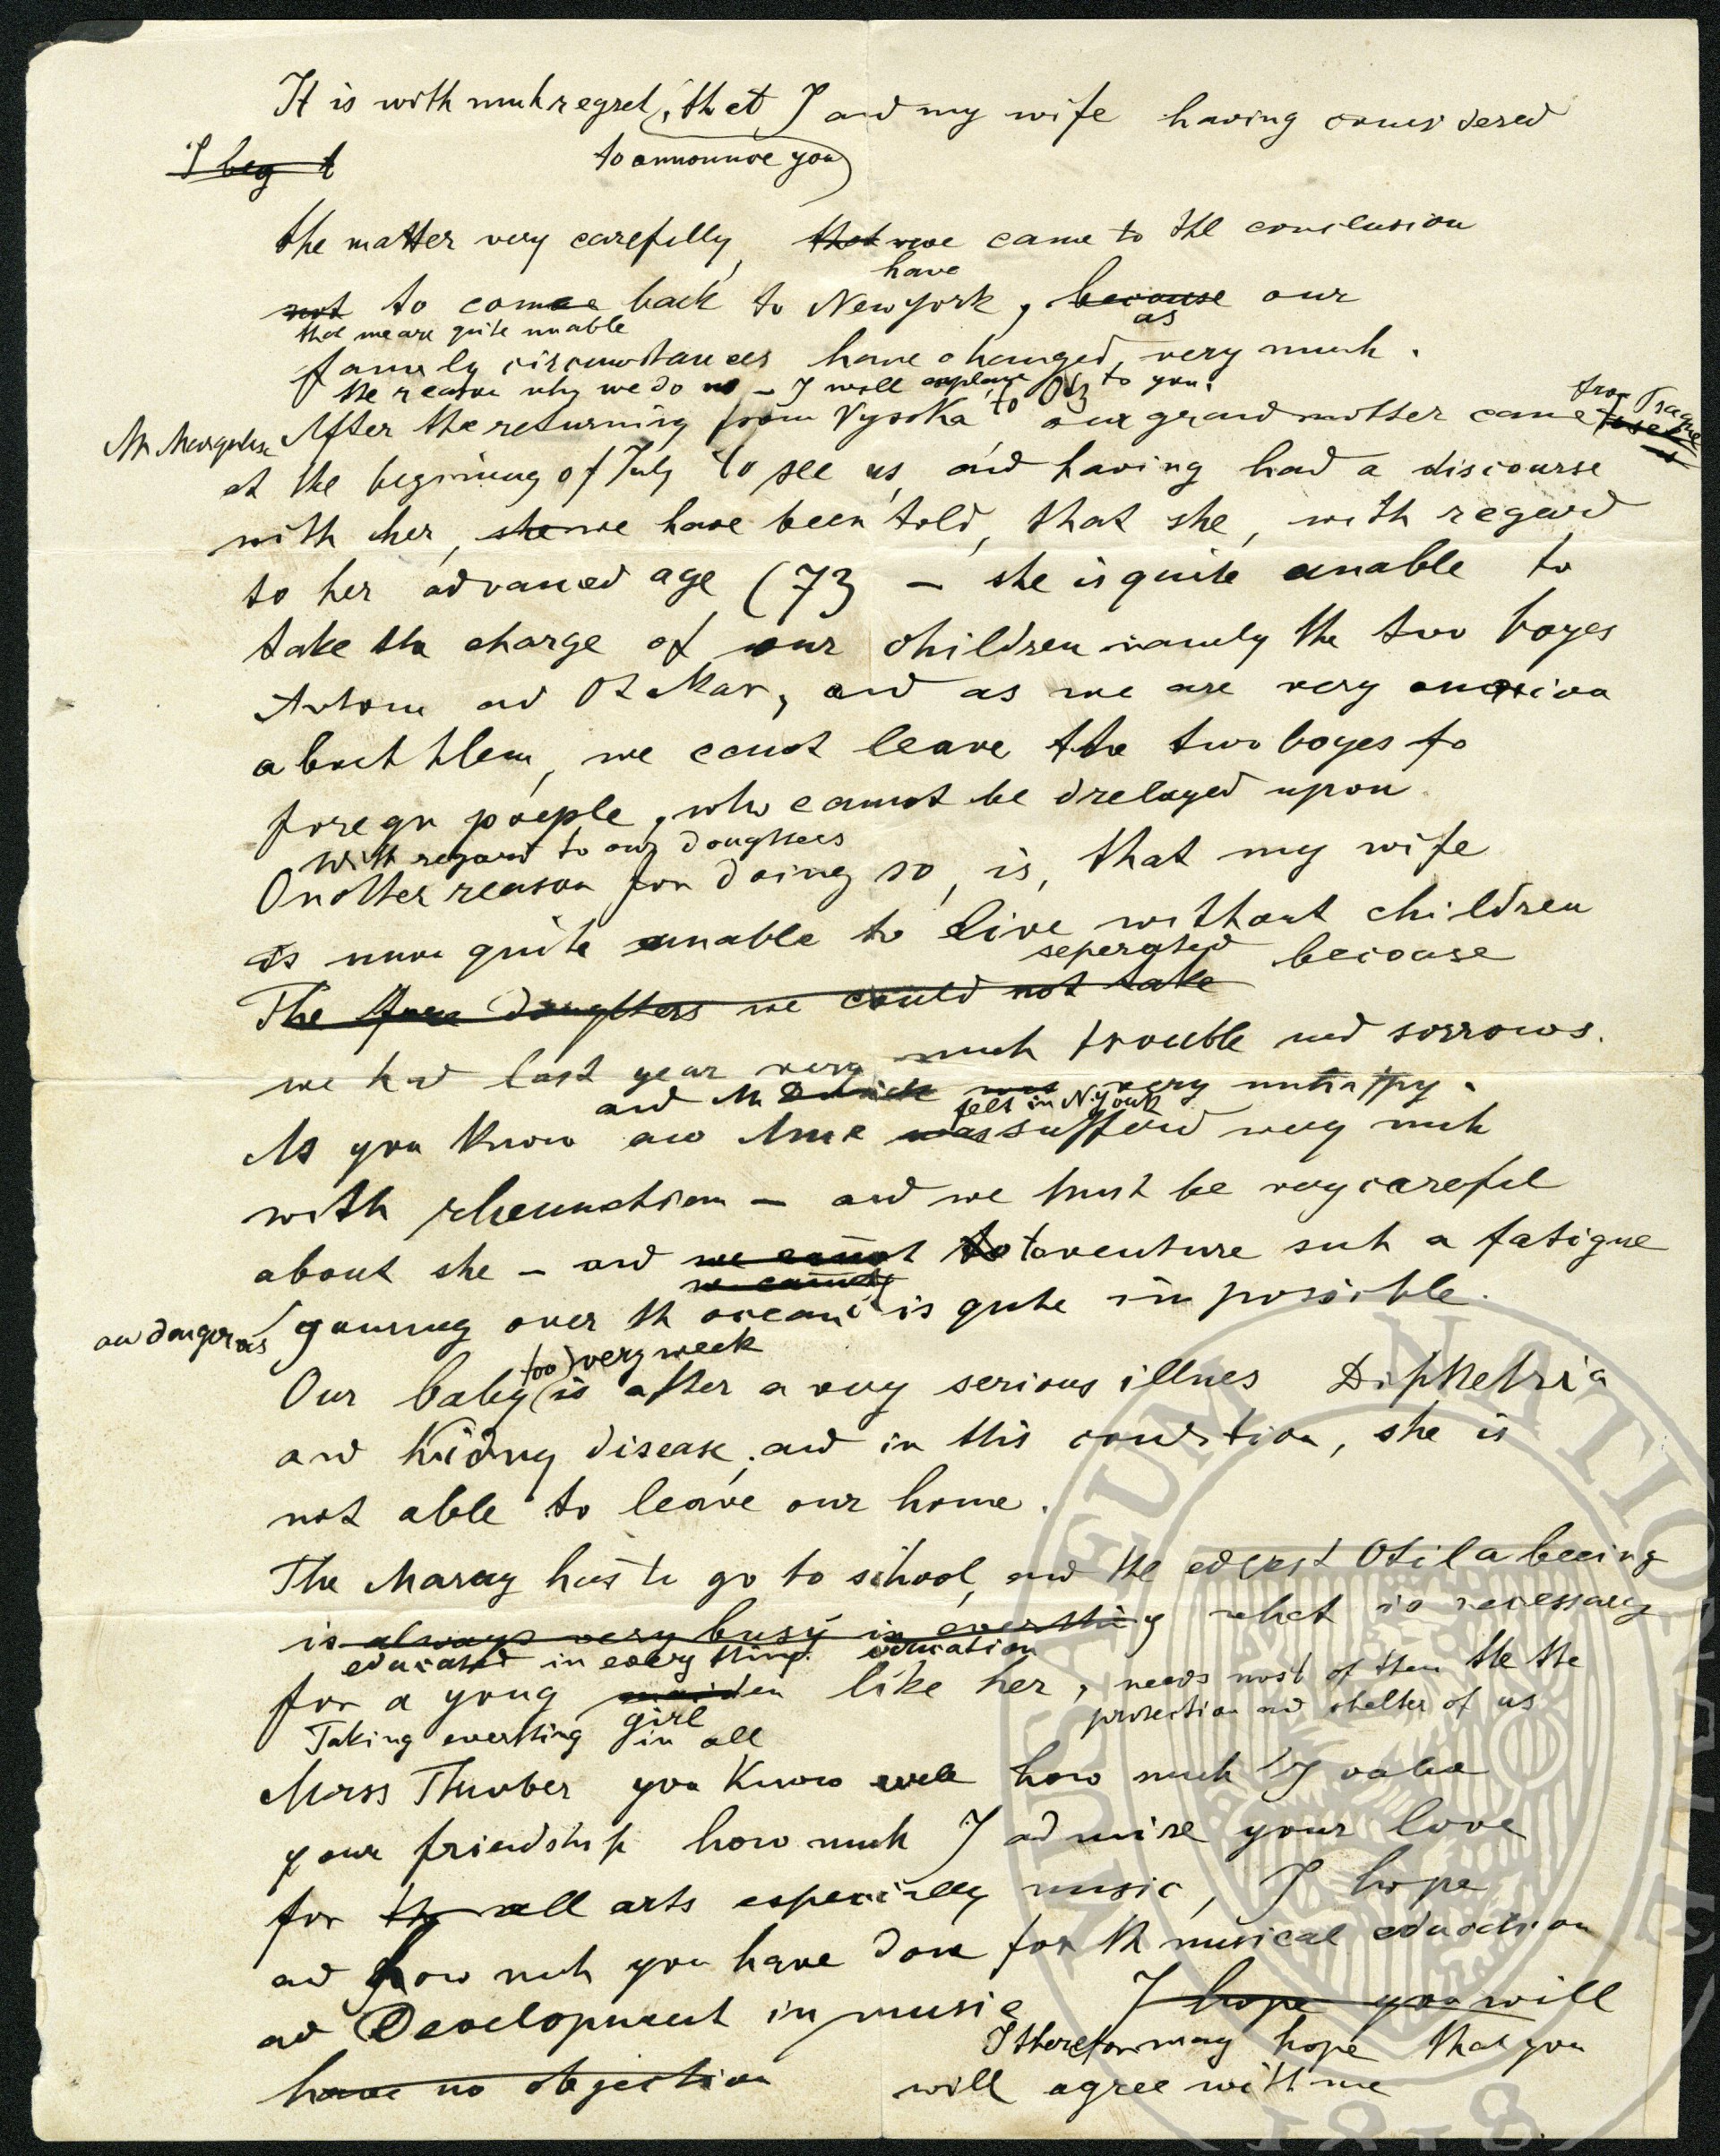 It is with muh regret, that I and my wife having considered
I beg t
to announce you
the matter very carefully, that we came to the conclusion
have
not to come back to New York, because our
that we are quite unable
as
family circumstances have changed very much.
the reason why we do no – I will explane to you.
After the returning from Vysoka to our grand mother came
from Prague
Mr Margulies
at the beginning of July to see us, and having had a discourse
with her, she we have been told, that she, with regard
to her advanced age (73 – she is quite unable to
take the charge of our children namely the two boyes
Antonin and Otakar, and as we are very
about them, we canot leave the two boyes to
foregn poeple, who cannot be drelayed upon
with regard to our daughters
Onother reason for doing so, is, that my wife
is now quite unable to live without children
seperated becouse
The four daughters we could not take
we had last year very much trouble and sorrows.
and felt in N. York very unhappy.
As you know an Ane was suffered very much
with rheumatism – and we must be very careful
about she – and we cannot to to venture such a fatigue
we cannot
and dangerous
gouing over th ocean is quite impossible.
too) very week
Our baby (is after a very serious illnes Diphtetria
and Kidney disease, and in this condition, she is
not able to leave our home.
The Maray has to go to school, and the edlest Otila beeing
is always very busy in everthing what is necessary
educated in every thing. education
for a young maiden like her, needs most of them the the
protection and shelter of us
girl
Taking everthing in all
Miss Thurber you know well how much I value
your friendship how much I admire your love
for th all arts especially music, I hope
and how much you have done for th musical education
ad Development in music I hope you will
I therefor may hope that you
have no objection will agree with me
MUSAEUM NATIONALE
1818